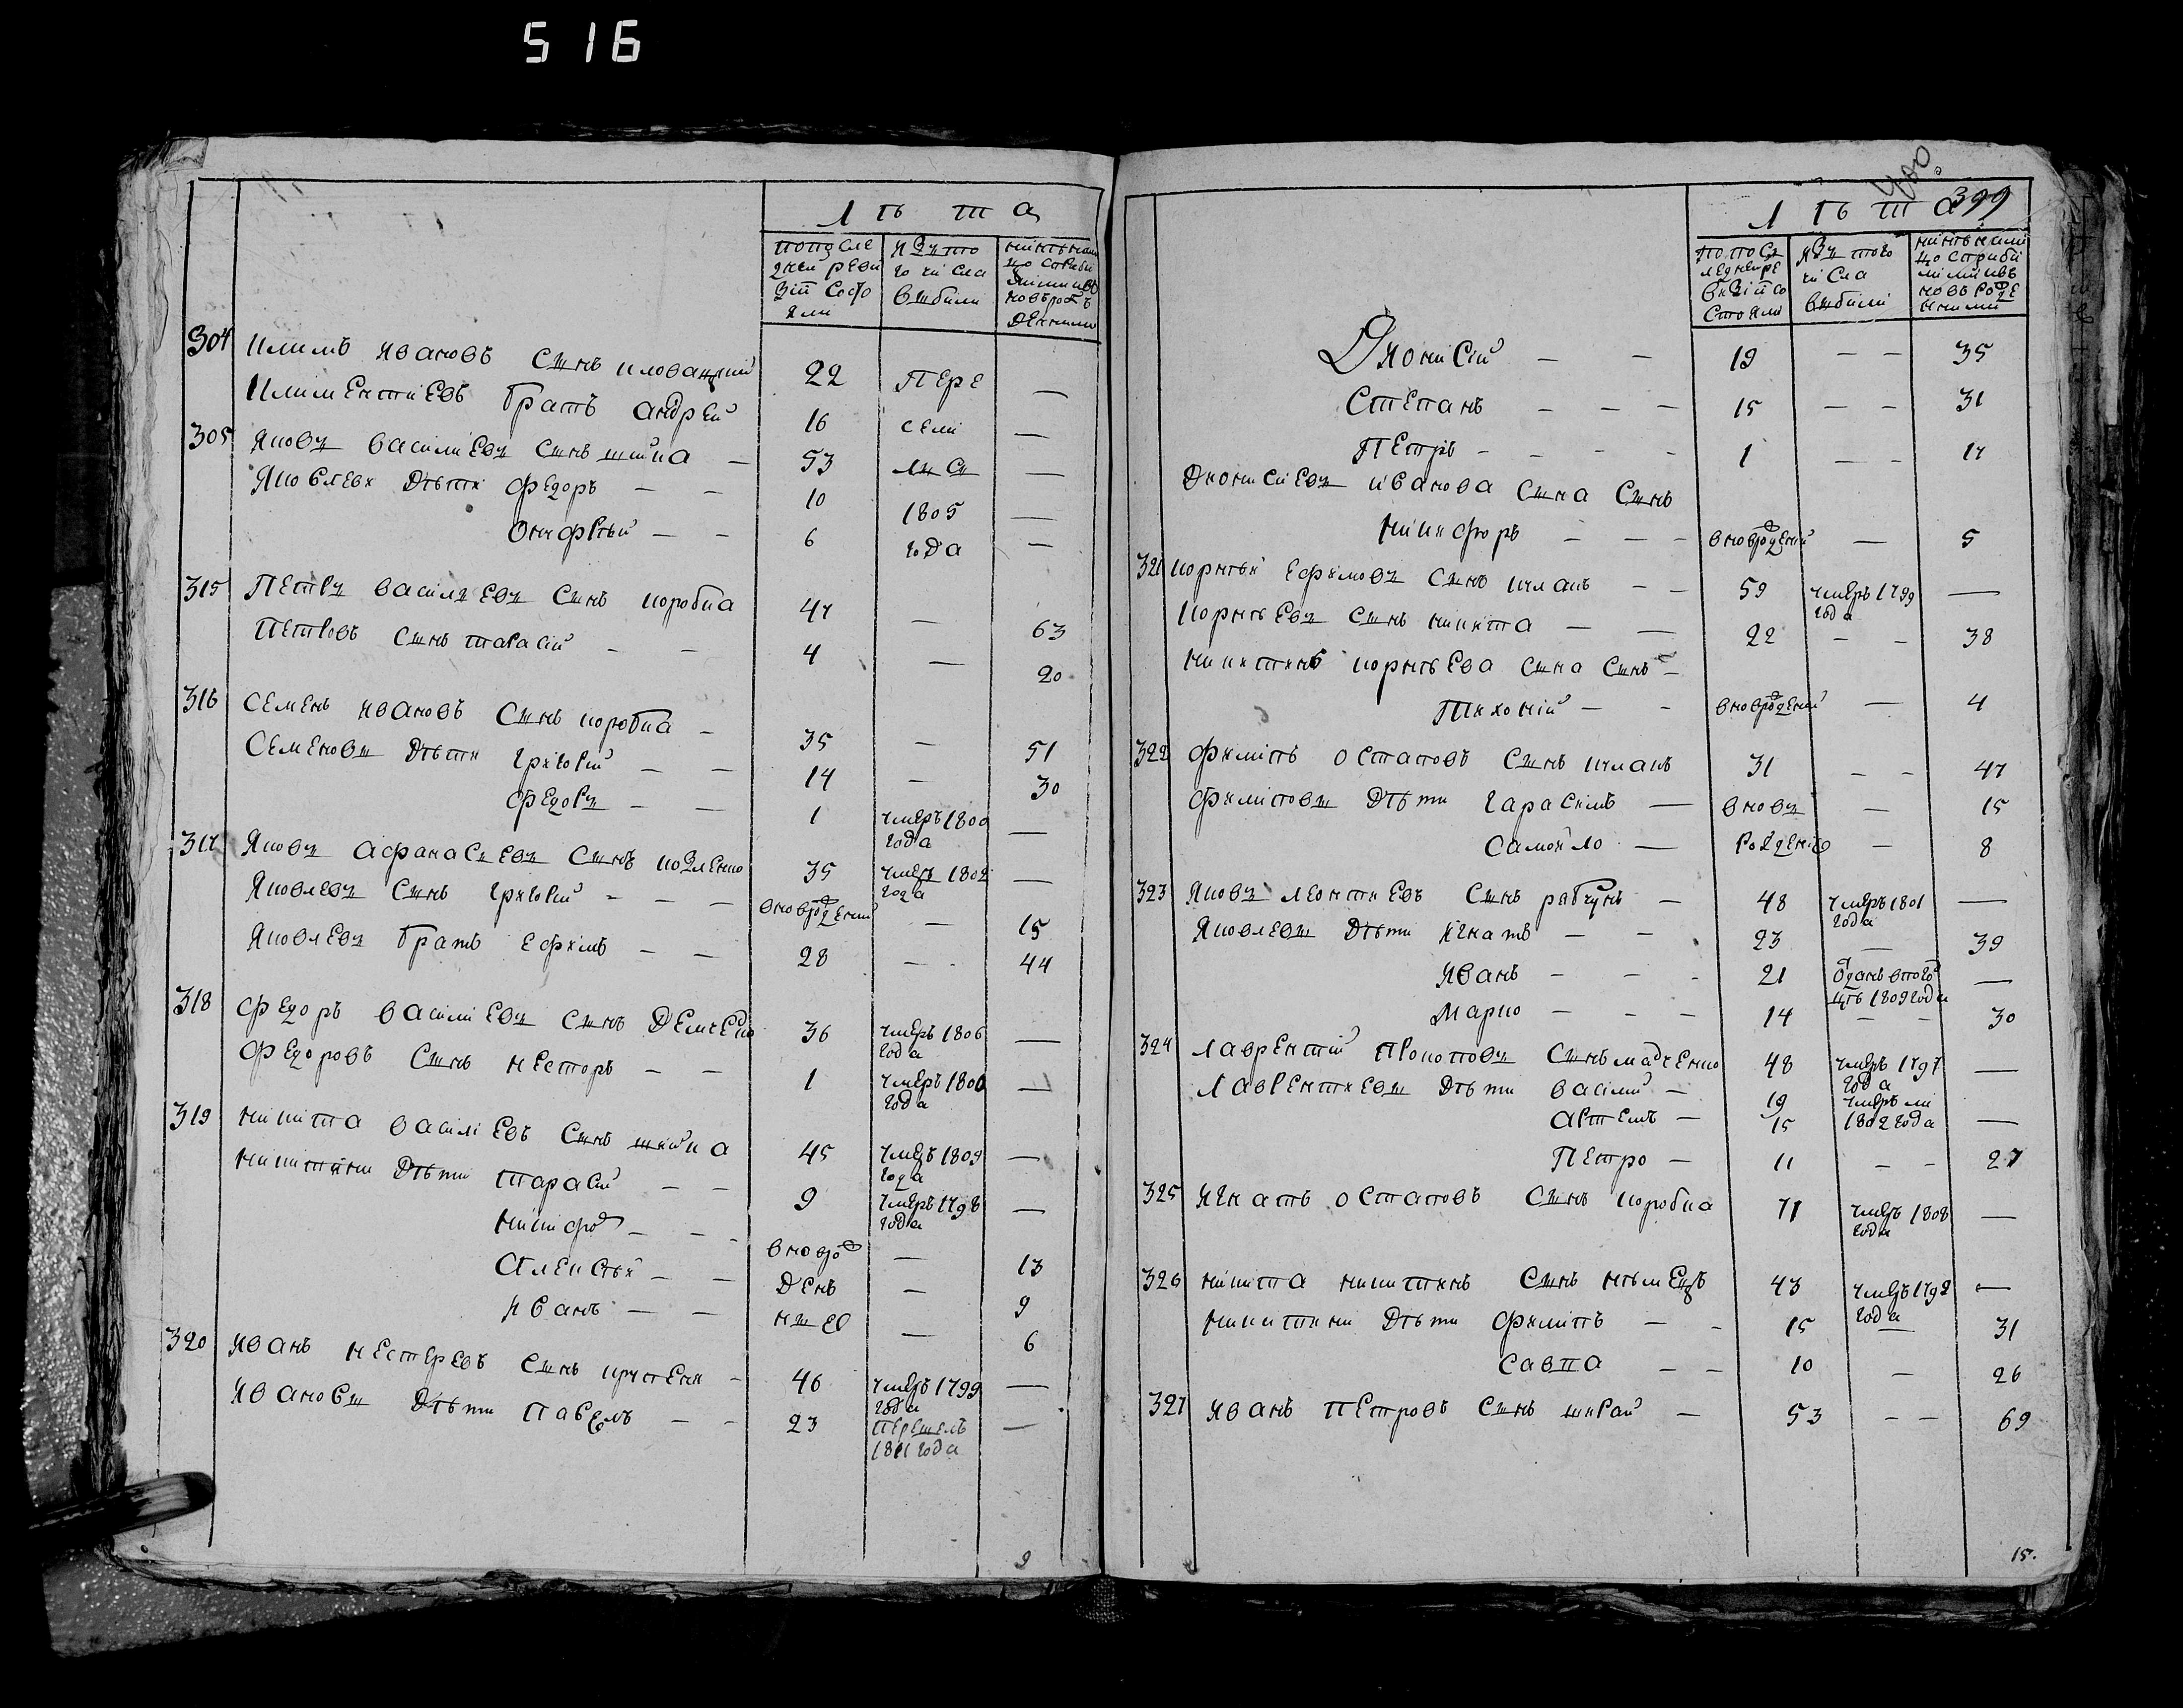 516
Лѣта
по последней ревизіи состояли
изъ того числа выбыли
нынѣ на лицо с прибылыми и вновь рожденными
304 Климъ Ивановъ сынъ
22 пере —
Климентіевъ братъ Андрей 16 сели —
305 Яковъ Василиевъ сынъ шийка — 53 лися —
Яковлевы дѣти Федоръ — — 10 1805 —
Онуфрѣй — — 6 года —
315 Петръ Василиевъ сынъ коробка 47 — 63
Петровъ сынъ Тарасій — — 4 — 20
316 Семенъ Ивановъ сынъ коробка — 35 — 51
Семеновы дѣти Григорій — — 14 — 30
Федоръ — — 1 умеръ 1800 года —
317 Яковъ Афанасиевъ сынъ козленко 35 умеръ 1802 года —
Яковлевъ сынъ Григорій — — — вновьрожденый — 15
Яковлевъ братъ Ефимъ — — 28 — — 44
318 Федоръ Василиевъ сынъ 36 умеръ 1806 года —
Федоровъ сынъ Несторъ — — 1 умеръ 1800 года —
319 Никита Василіевъ сынъ шийка 45 умеръ 1809 года —
Никитины дѣти Тарасій — — 9 умеръ 1798 года —
Никифор — — — вноврож — 13
Алексѣй — — ден — 9
Иванъ — — ные — 6
320 Иванъ Нестеревъ сынъ — 46 умеръ 1799 года —
Ивановы дѣти Павелъ — — 23 перешелъ 1811 года —
9
400
399
Лѣта
по последней ревизіи состояли
изъ того числа выбыли
нынѣ на лицо с прибылыми и вновь рожденными
Дионисій — — 19 — — 35
Степанъ — — — 15 — — 31
Петръ — — — — 1 — — 17
Дионисіевъ Иванова сына сынъ
Никифоръ — — — вноврожденый — 5
321 Корнѣй Ефимовъ сынъ — — 59 умеръ 1799 года —
Корнѣевъ сынъ Никита — — 22 — — 38
Никитинъ Корнѣева сына сынъ —
Тихоній — — вноврожденый — 4
322 Филипъ Остаповъ сынъ 31 — — 47
Филиповы дѣти Гарасимъ — вновь — 15
Самойло — рожденые — 8
323 Яковъ Леонтиевъ сынъ рабчунъ — 48 умеръ 1801 года —
Яковлевы дѣти Игнатъ — — 23 — 39
Иванъ — — — 21 1809 года —
Марко — — — 14 — — 30
324 Лаврентій Прокоповъ сынъ мадченко 48 умеръ 1797 года —
Лаврентиевы дѣти Василий — 19 умерли
Артемъ — 15 1802 года —
Петро — 11 — — 27
325 Игнатъ Остаповъ сынъ коробка 71 умеръ 1808 года —
326 Никита Никитинъ сынъ нѣмецъ 43 умеръ 1792 года —
Никитини дѣти Филипъ — — 15 — 31
Савка — — 10 — 26
327 Иванъ Петровъ сынъ шкрай — 53 — — 69
15.